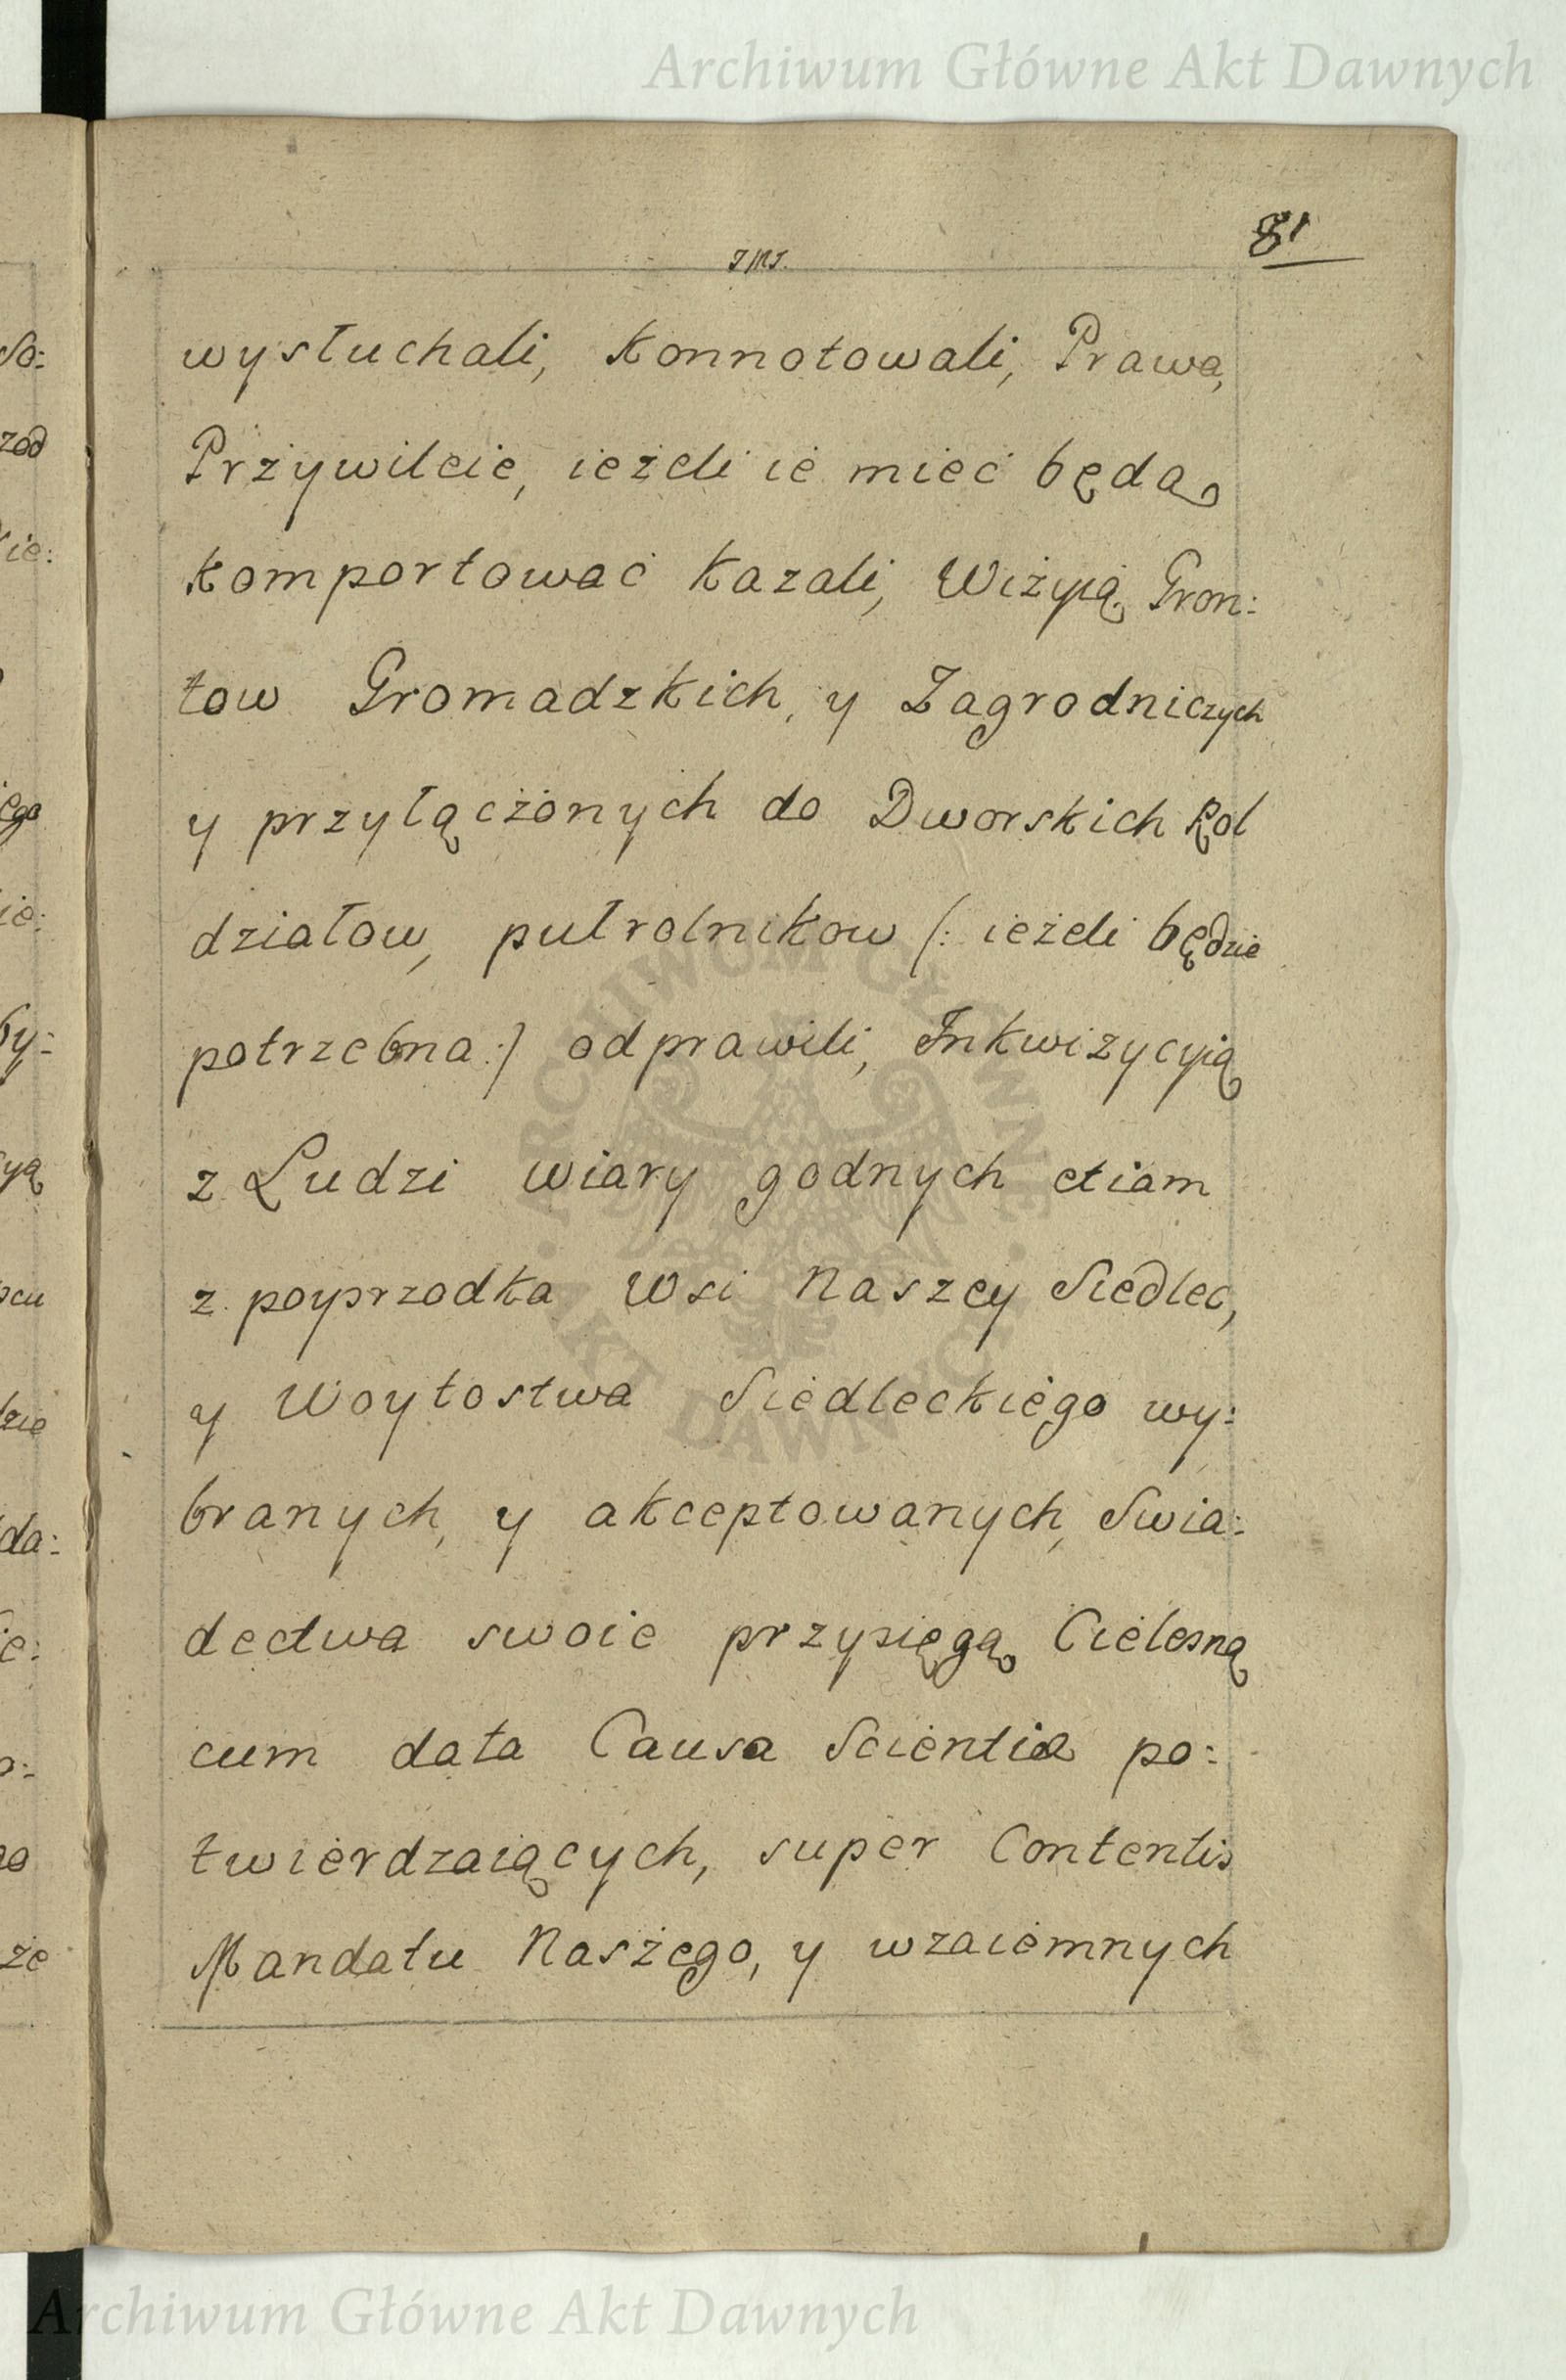 Archiwum Główne Akt Dawnych
81
wysłuchali, konnotowali, Prawa,
Przywileie, ieżeli ie mieć będą
komportować kazali, Wizyią Gron:
tow Gromadzkich, y Zagrodniczych
y przyłączonych do Dworskich Rol
działow, pułrolnikow (: ieżeli będzie
potrzebna :) odprawili, Inkwizycyią
z Ludzi wiary godnych etiam
z poyprzodka Wsi Naszey Siedlec,
y Woytostwa Siedleckiego wy:
branych, y akceptowanych, Swia:
dectwa swoie przysięgą Cielesną
cum data Causa Scientiæ po:
twierdzaiących, super Contentis
Mandatu Naszego, y wzaiemnych
ARCHIWUM GŁÓWNE AKT DAWNYCH
Archiwum Główne Akt Dawnych